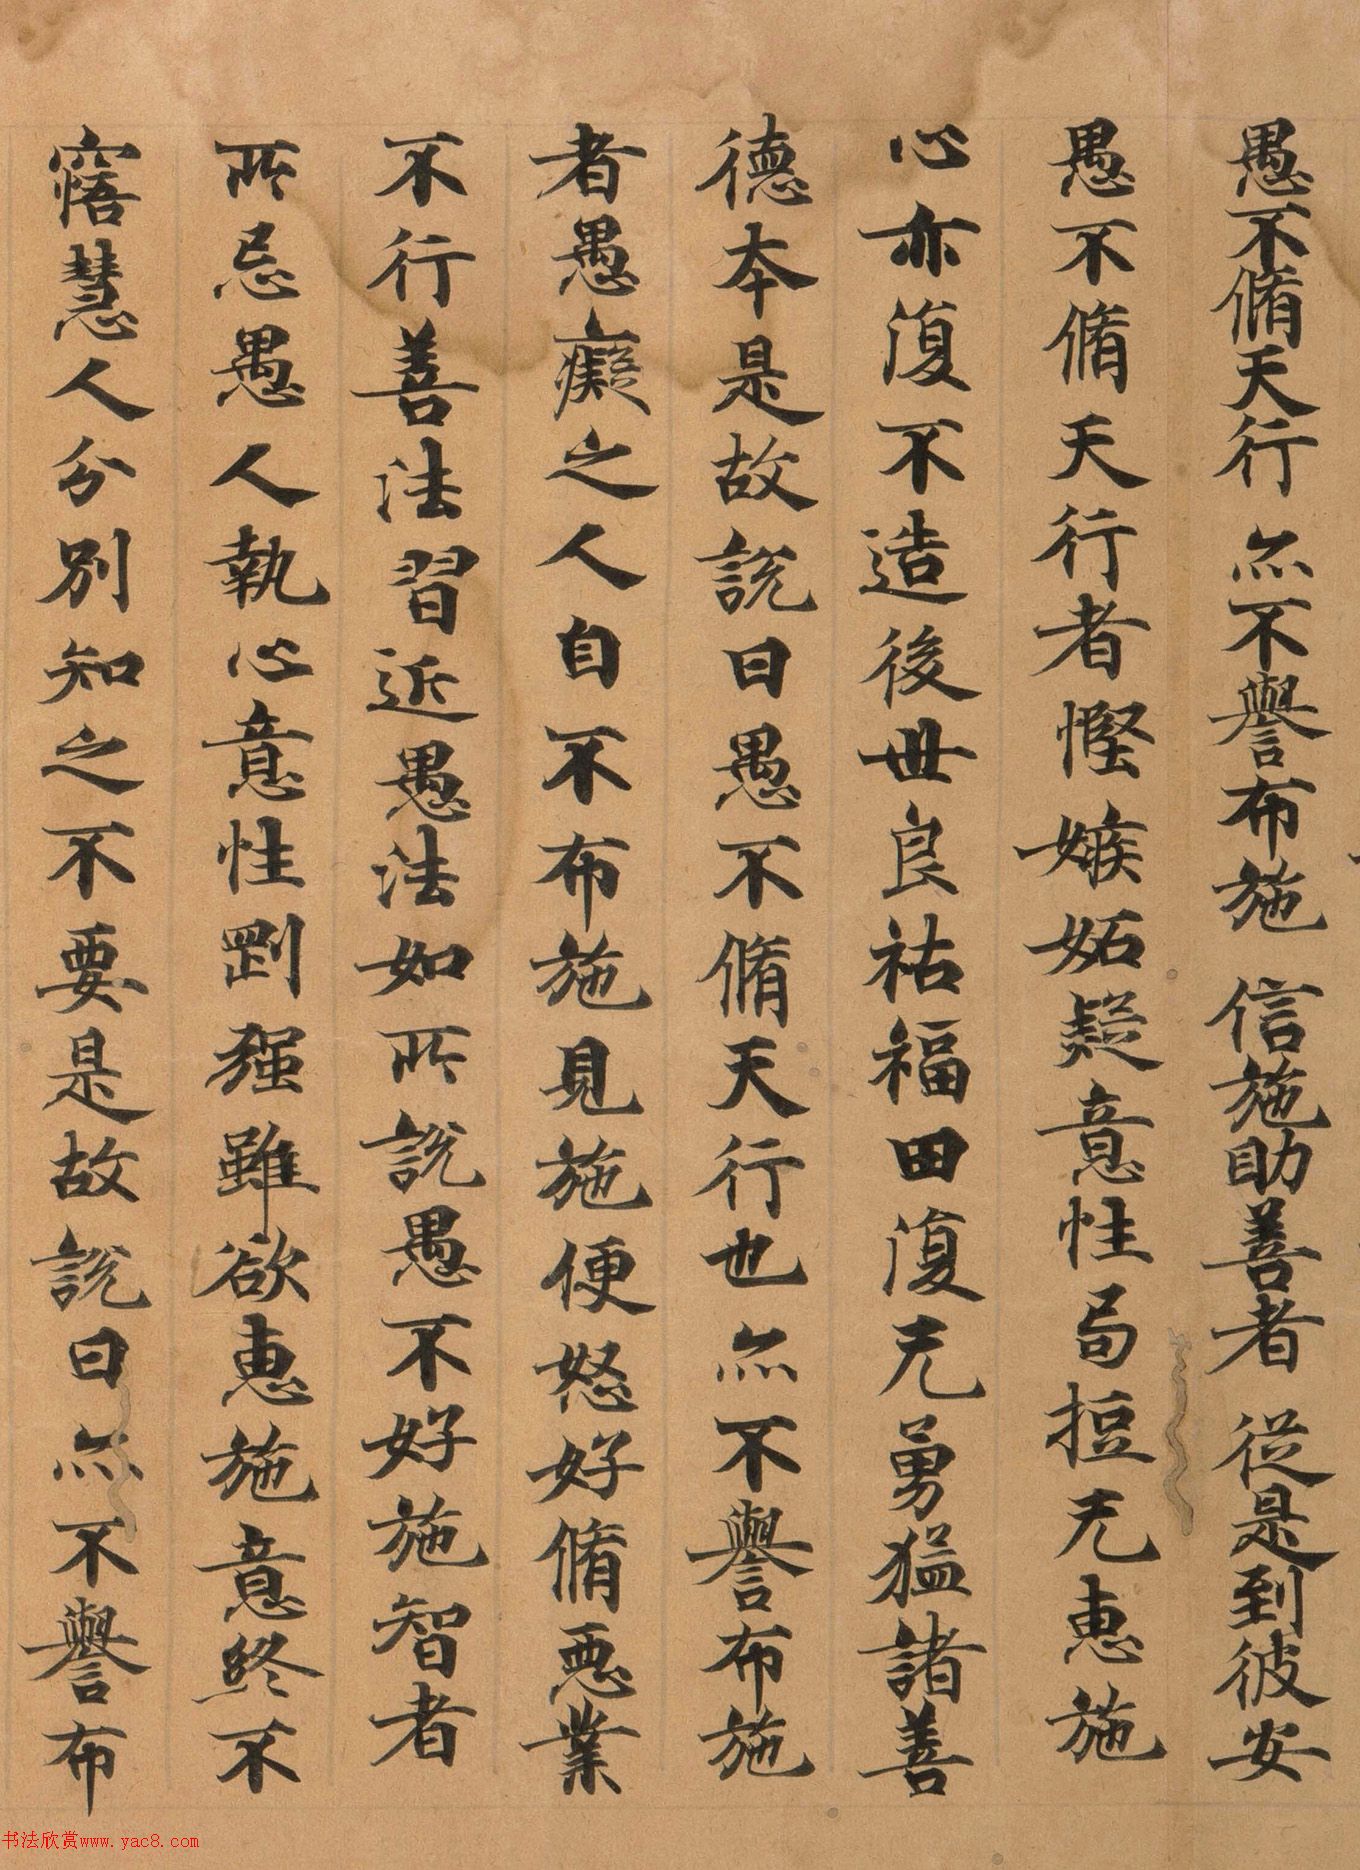 愚不脩天行 亦不譽布施 信施助善者 從是到彼安
愚不脩天行者慳嫉妬疑意性局短无惠施
心亦復不造後世良祐福田復无勇猛諸善
德本是故說曰愚不脩天行也亦不譽布施
者愚癡之人自不布施見施便怒好脩惡業
不行善法習近愚法如所說愚不好施智者
所忌愚人執心意性剛强雖欲惠施意終不
寤慧人分別知之不要是故說曰亦不譽布
书法欣赏www.yac8.com